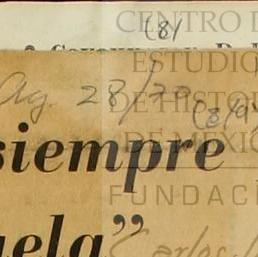 (8)
CENTRO D
ESTUDIO
DE HISTO
DE MÉXIC
FUNDACI
Ag. 28/70
(8/9
siempre
uela”
Carlos